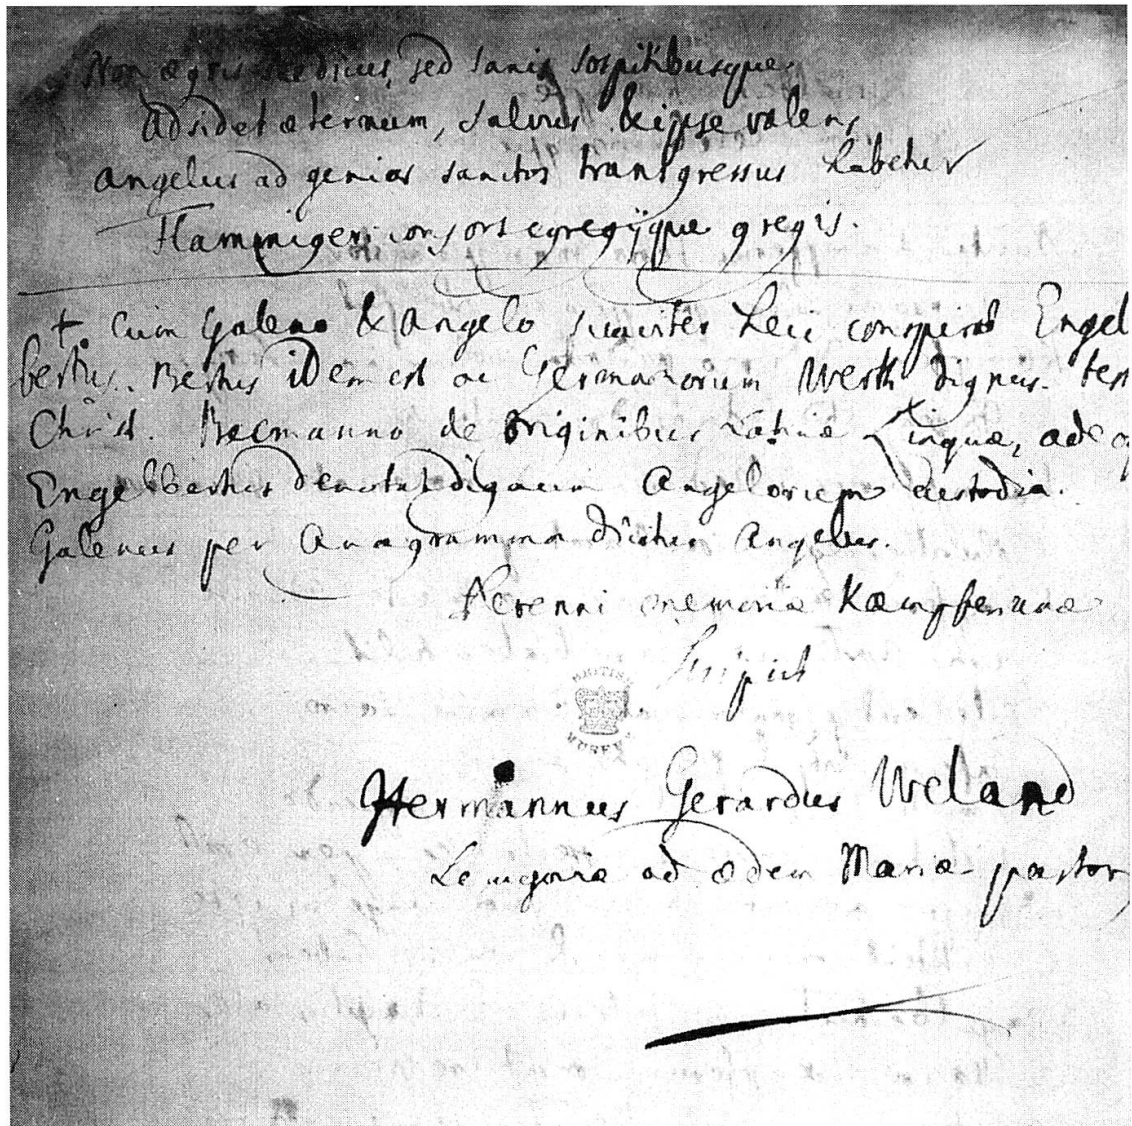 Non ægris Medicus, sed sanis sospitibusque
adsidet æternum, salvus & ipse valens
angelus ad genios sanctos transgressus habetur
Flammigeri consors egregijque gregis.
+ Cum Galeno & Angelo suaviter heic conspirat Engel
bertus. Bertus idem est ac Germanorum Werth dignus. test
Christ. Becmanno de Originibus Latinæ Linguæ, adeoq
Engelbertus denotat dignum Angelorum custodia.
Galenus per Anagramma dicitur Angelus.
Perenni memoriæ Kæmpferianæ
scripsit
BRITISH
MUSEUM
Hermannus Gerardus Weland
Lemgoviæ ad ædem Mariæ pastor